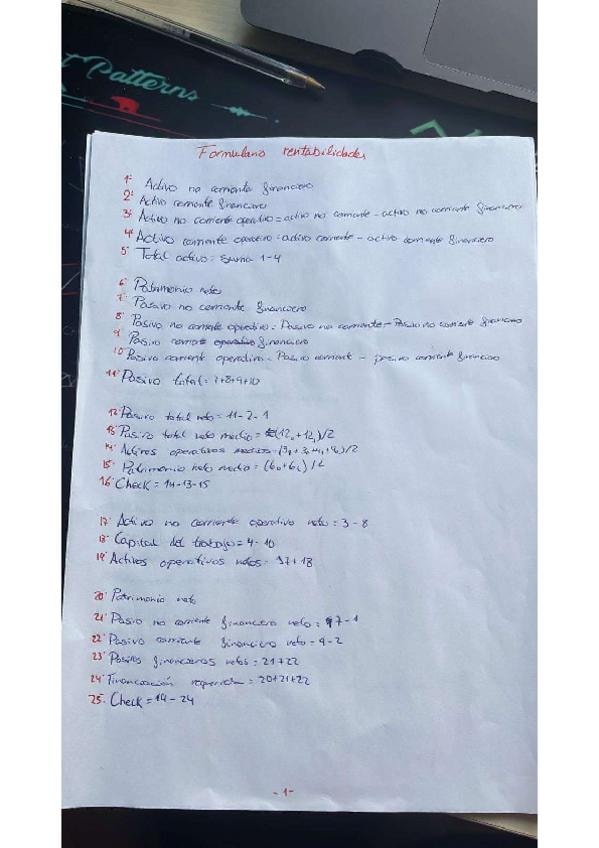 t Patterns
Formulario rentabilidades
1. Activo no corriente financiero
2. Activo corriente financiero
3. Activo no corriente operativo = activo no corriente - activo no corriente financiero
4. Activo corriente operativo = activo corriente - activo corriente financiero
5. Total activo: Suma 1-4
6. Patrimonio neto
7. Pasivo no corriente financiero
8. Pasivo no corriente operativo: Pasivo no corriente - Pasivo no corriente financiero
9. Pasivo corriente financiero
10. Pasivo corriente operativo = Pasivo corriente - pasivo corriente financiero
11. Pasivo total = 7+8+9+10
12. Pasivo total neto = 11-2-1
13. Pasivo total neto medio = (12₀+12₁)/2
14. Activos operativos medios =
15. Patrimonio neto medio = (6₀+6₁)/2
16. Check = 14-13-15
17. Activo no corriente operativo neto = 3-8
18. Capital del trabajo = 4-10
19. Activos operativos netos = 17+18
20. Patrimonio neto
21. Pasivo no corriente financiero neto = 7-1
22. Pasivo corriente financiero neto = 9-2
23. Pasivos financieros netos = 21+22
24. Financiación requerida = 20+21+22
25. Check = 14-24
-1-